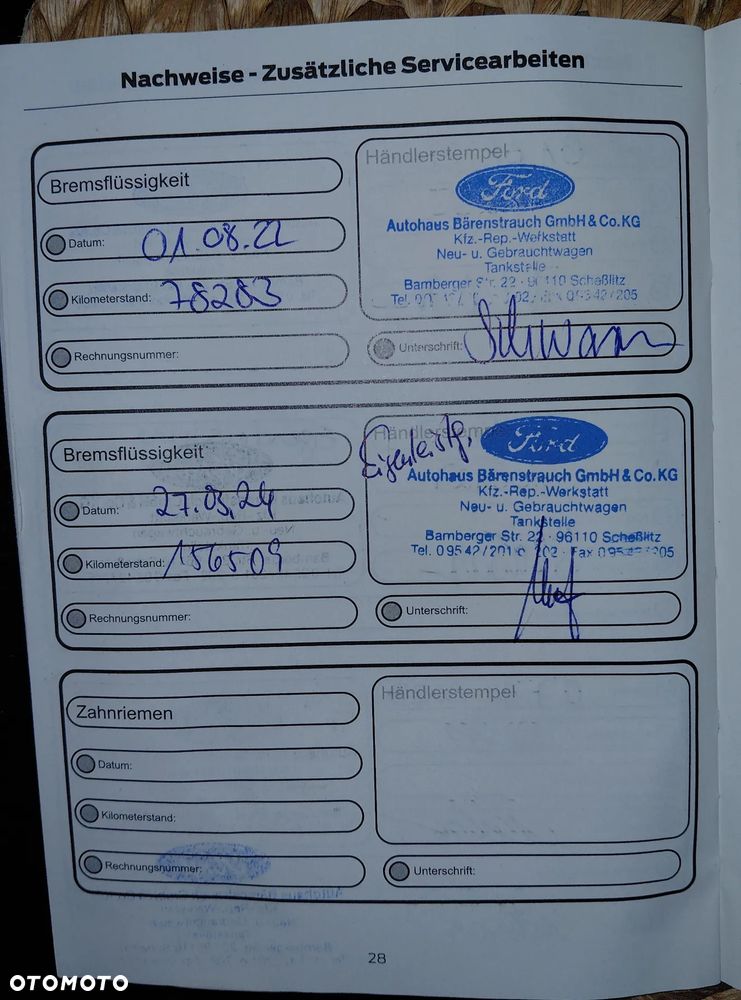 Nachweise - Zusätzliche Servicearbeiten
Bremsflüssigkeit
Datum: 01.08.22
Kilometerstand: 78283
Rechnungsnummer:
Händlerstempel
Ford
Autohaus Bärenstrauch GmbH & Co.KG
Kfz.-Rep.-Werkstatt
Neu- u. Gebrauchtwagen
Tankstelle
Bamberger Str. 22 · 96110 Scheßlitz
Tel.
Unterschrift:
Bremsflüssigkeit
Datum: 27.03.24
Kilometerstand: 156509
Rechnungsnummer:
Händlerstempel
Ford
Autohaus Bärenstrauch GmbH & Co.KG
Kfz.-Rep.-Werkstatt
Neu- u. Gebrauchtwagen
Tankstelle
Bamberger Str. 22 · 96110 Scheßlitz
Tel. 09542/201 o. 202 · Fax 09542/205
Unterschrift:
Zahnriemen
Datum:
Kilometerstand:
Rechnungsnummer:
Händlerstempel
Unterschrift:
28
OTOMOTO